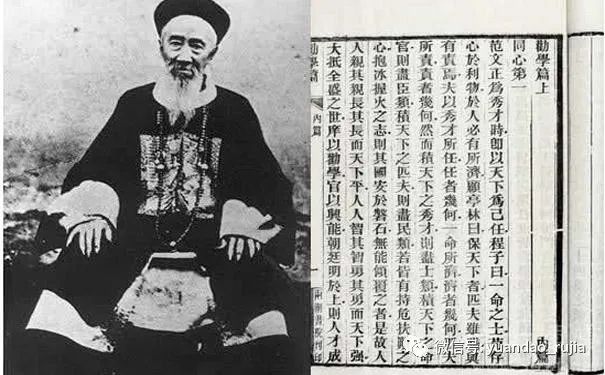 內篇
勸學篇上
同心第一
范文正為秀才時即以天下為己任程子曰一命之士苟存
心於利物於人必有所濟顧亭林曰保天下者匹夫雖賤與
有責焉夫以秀才所任任者幾何一命所濟濟者幾何匹夫
所責責者幾何然而積天下之秀才則盡士類積天下之命
官則盡臣類積天下之匹夫則盡民類若皆有持危扶顛之
心抱冰握火之志則其國安於磐石無能傾覆之者是故人
人親其親長其長而天下平人人智其智勇其勇而天下強
大抵全盛之世庠以勸學官以興能朝廷明於上則人才成
勸學篇 內篇
兩湖書院刊印
微信号: yuandao_rujia